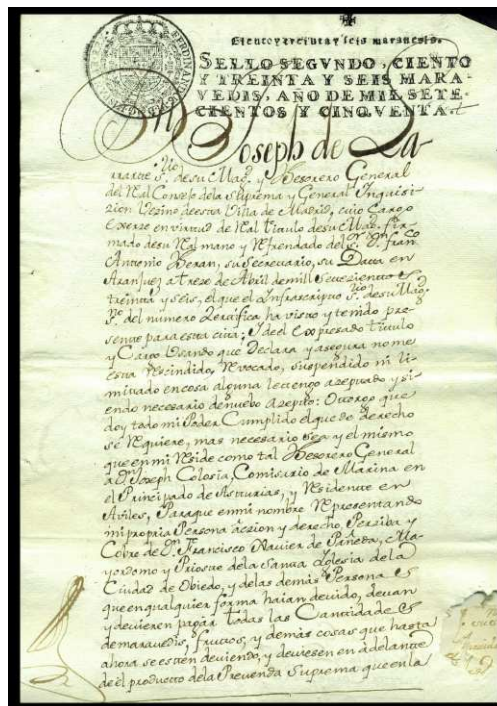 Ciento y treinta y seis maravedis.
SELLO SEGVNDO, CIENTO
Y TREINTA Y SEIS MARA-
VEDIS, AÑO DE MIL SETE-
CIENTOS Y CINQVENTA.
Joseph de La-
rrarte S.rio de su Mag. y Thesorero General
del Rl Consejo dela Suprema y General Inquisi-
zion Vezino de esta Villa de Madrid, cuio Cargo
Exerze en virtud de Rl titulo de su Mag. fir-
mado de su Rl mano y Refrendado del Sr. Dn. Franco
Antonio su Secretario, su Data en
Aranjuez a treze de Abril de mill Setezientos
treinta y seis, el que el Infrascripto S.rio de su Mag.
no. del numero Zertifica ha visto y tenido pre-
sente para esta cita; Y de el Expresado titulo
y Cargo Usando que Declara y asegura no me
esta Rescindido, Revocado, suspendido ni li-
mitado en cosa alguna le tengo azeptado y si-
endo necesario de nuebo azepto: Otorgo que
doy todo mi Poder Cumplido el que de derecho
se Requiere, mas necesario sea y el mismo
que en mi Reside como tal Thesorero General
a Dn. Joseph Colosia, Comisario de Marina en
el Principado de Asturias, y Residente en
Aviles, Para que en mi nombre Representando
mi propia Persona aczion y derecho, Perziba y
Cobre de Dn. Francisco Xavier de Ma-
yordomo y Prioste de la Santa Iglesia de la
Ciudad de Obiedo, y de las demás Personas
que en qualquier forma haian devido, devan
y devieren pagar todas las Cantidades
de maravedis, frutos, y demás cosas que hasta
ahora se esten deviendo, y deviesen en adelante
de el producto de la Prevenda Suprema que en la